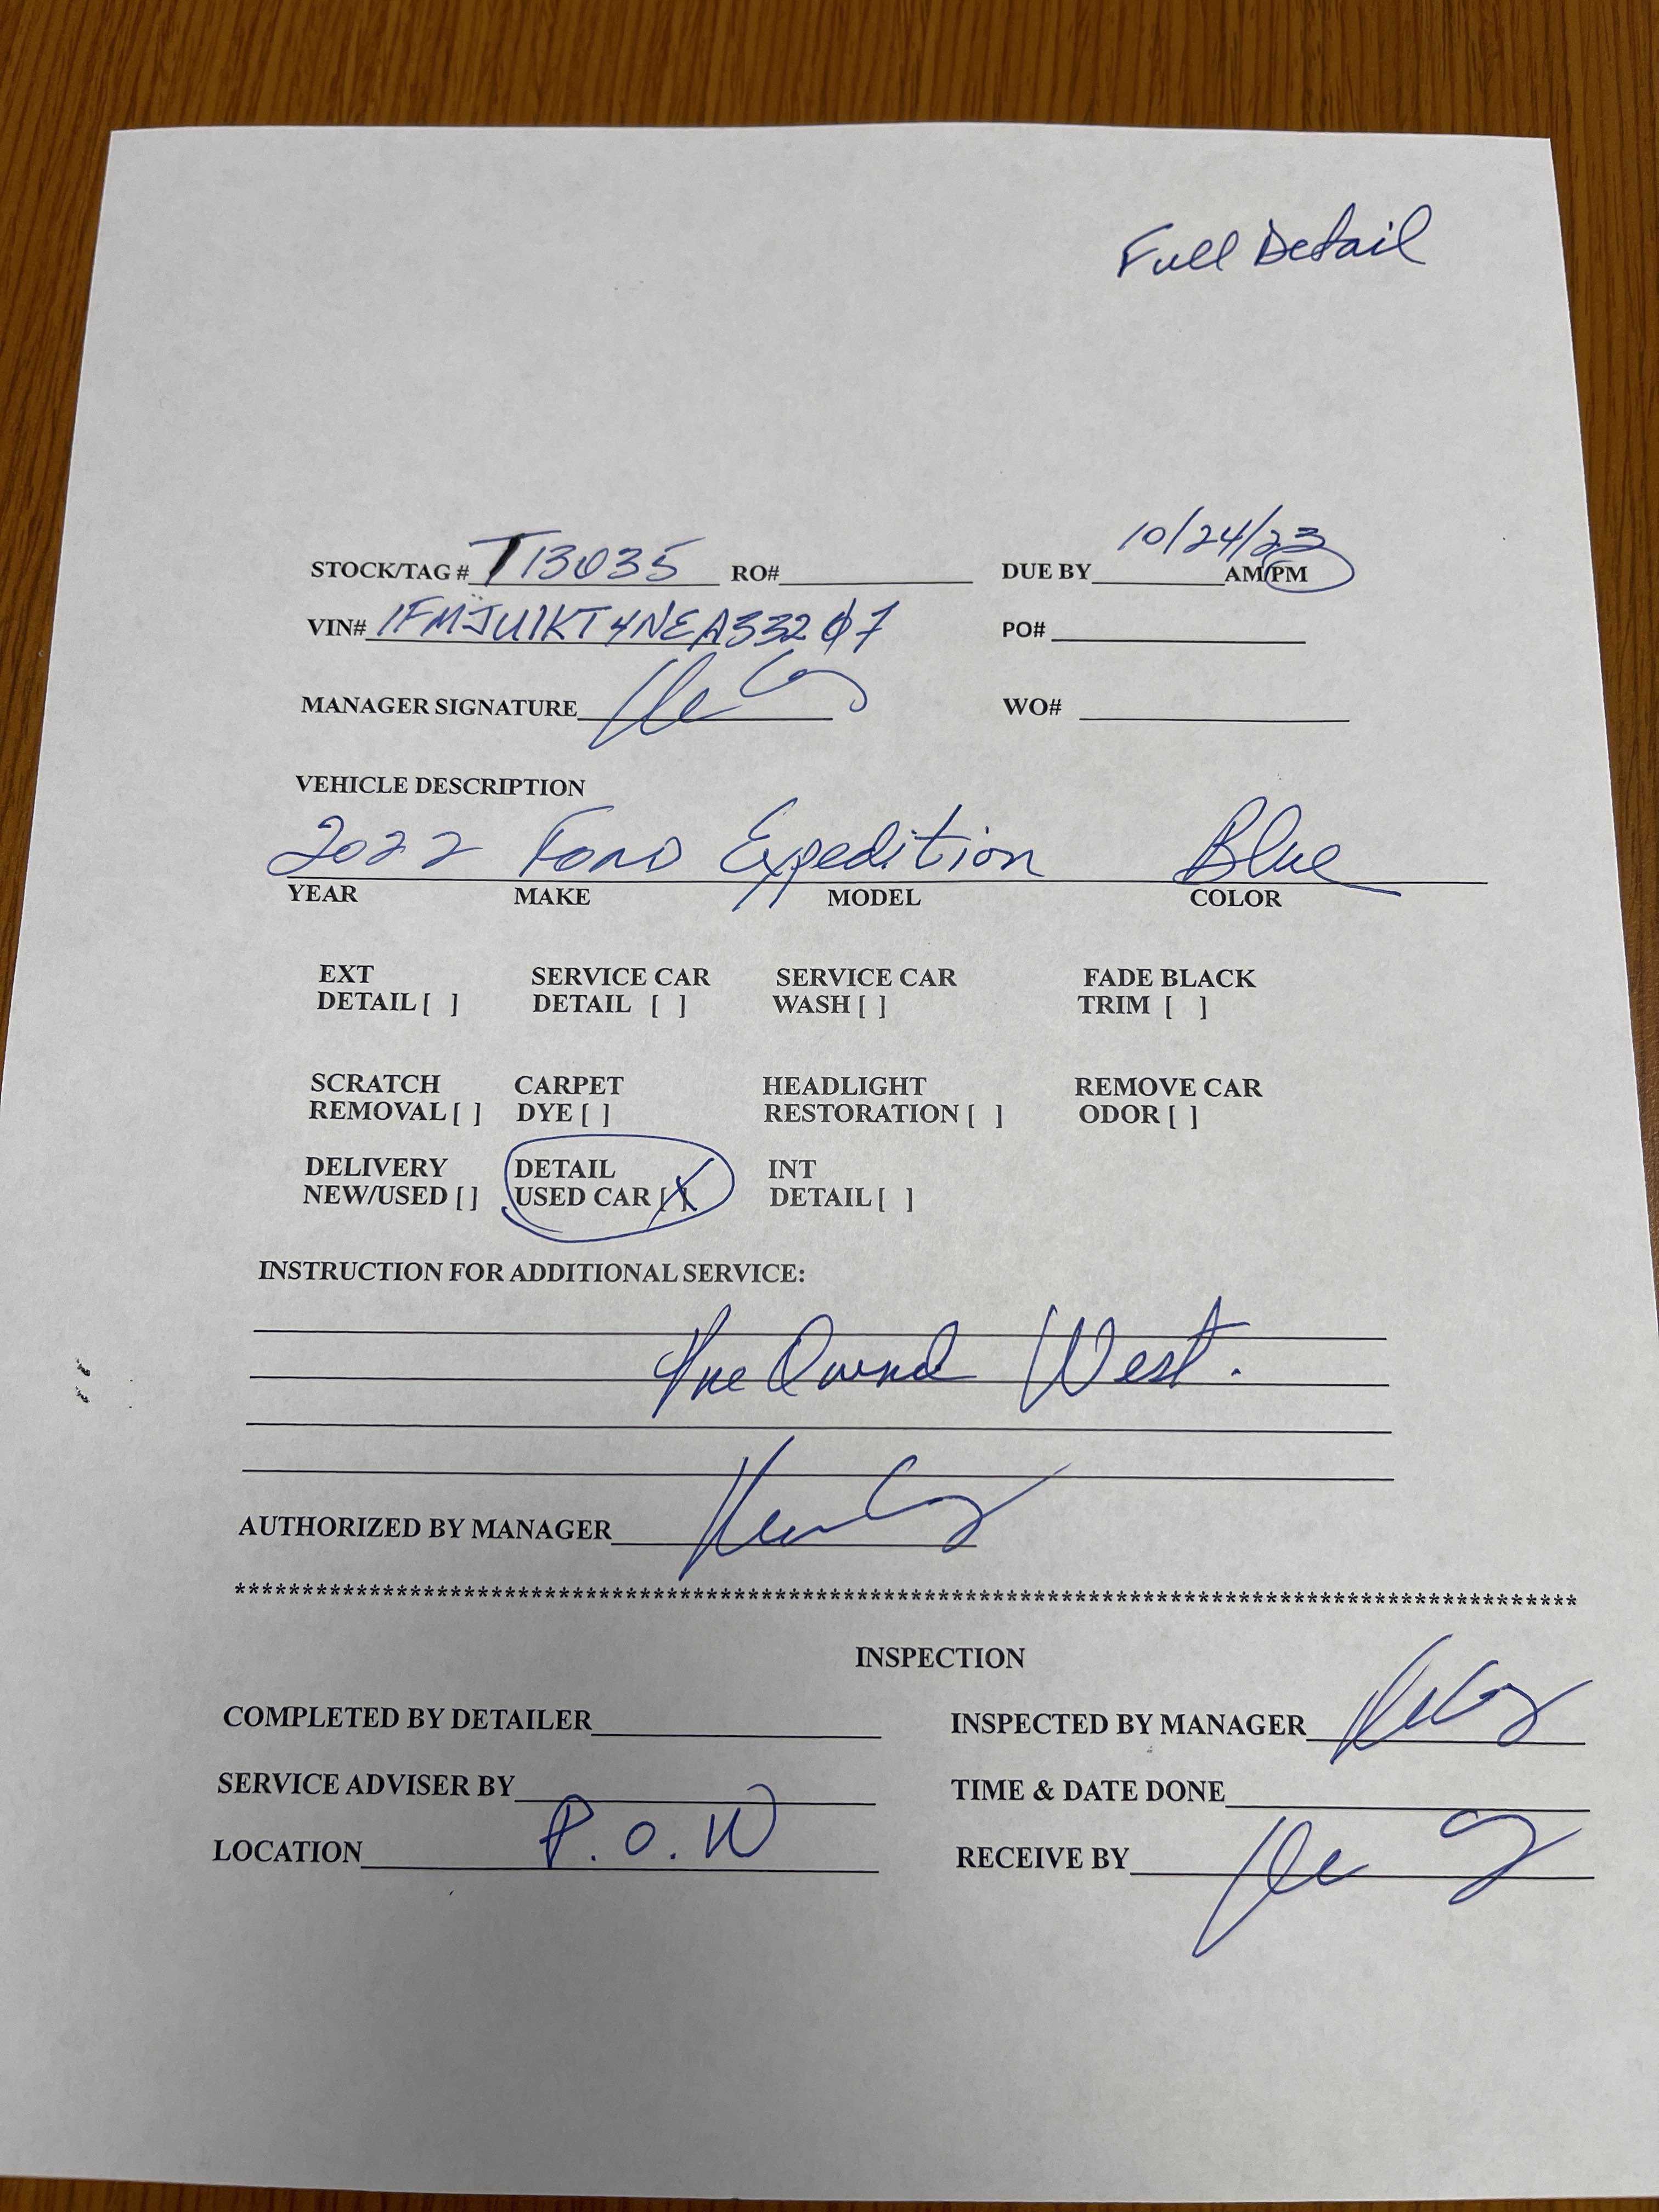 Full Detail
STOCK/TAG # T13035 RO# DUE BY 10/24/23 AM/PM
VIN# 1FMJU1KT4NEA33207 PO#
MANAGER SIGNATURE WO#
VEHICLE DESCRIPTION
2022 Ford Expedition Blue
YEAR MAKE MODEL COLOR
EXT SERVICE CAR SERVICE CAR FADE BLACK
DETAIL [ ] DETAIL [ ] WASH [ ] TRIM [ ]
SCRATCH CARPET HEADLIGHT REMOVE CAR
REMOVAL [ ] DYE [ ] RESTORATION [ ] ODOR [ ]
DELIVERY DETAIL INT
NEW/USED [ ] USED CAR [X] DETAIL [ ]
INSTRUCTION FOR ADDITIONAL SERVICE:
Pre Ownd West.
AUTHORIZED BY MANAGER
********************************************************************************************************
INSPECTION
COMPLETED BY DETAILER INSPECTED BY MANAGER
SERVICE ADVISER BY TIME & DATE DONE
LOCATION P.O.W RECEIVE BY